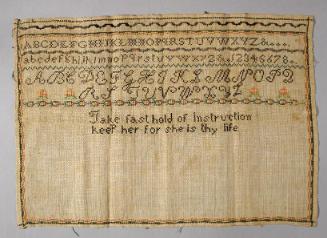 ABCDEFGHIJKLMNOPQRSTUVWXYZ&
abcdefghijklmnopqrstuvwxyz& 12345678
ABCDEFGHIKLMNOPQ
RSTUVWXYZ
Take fast hold of Instruction
keep her for she is thy life